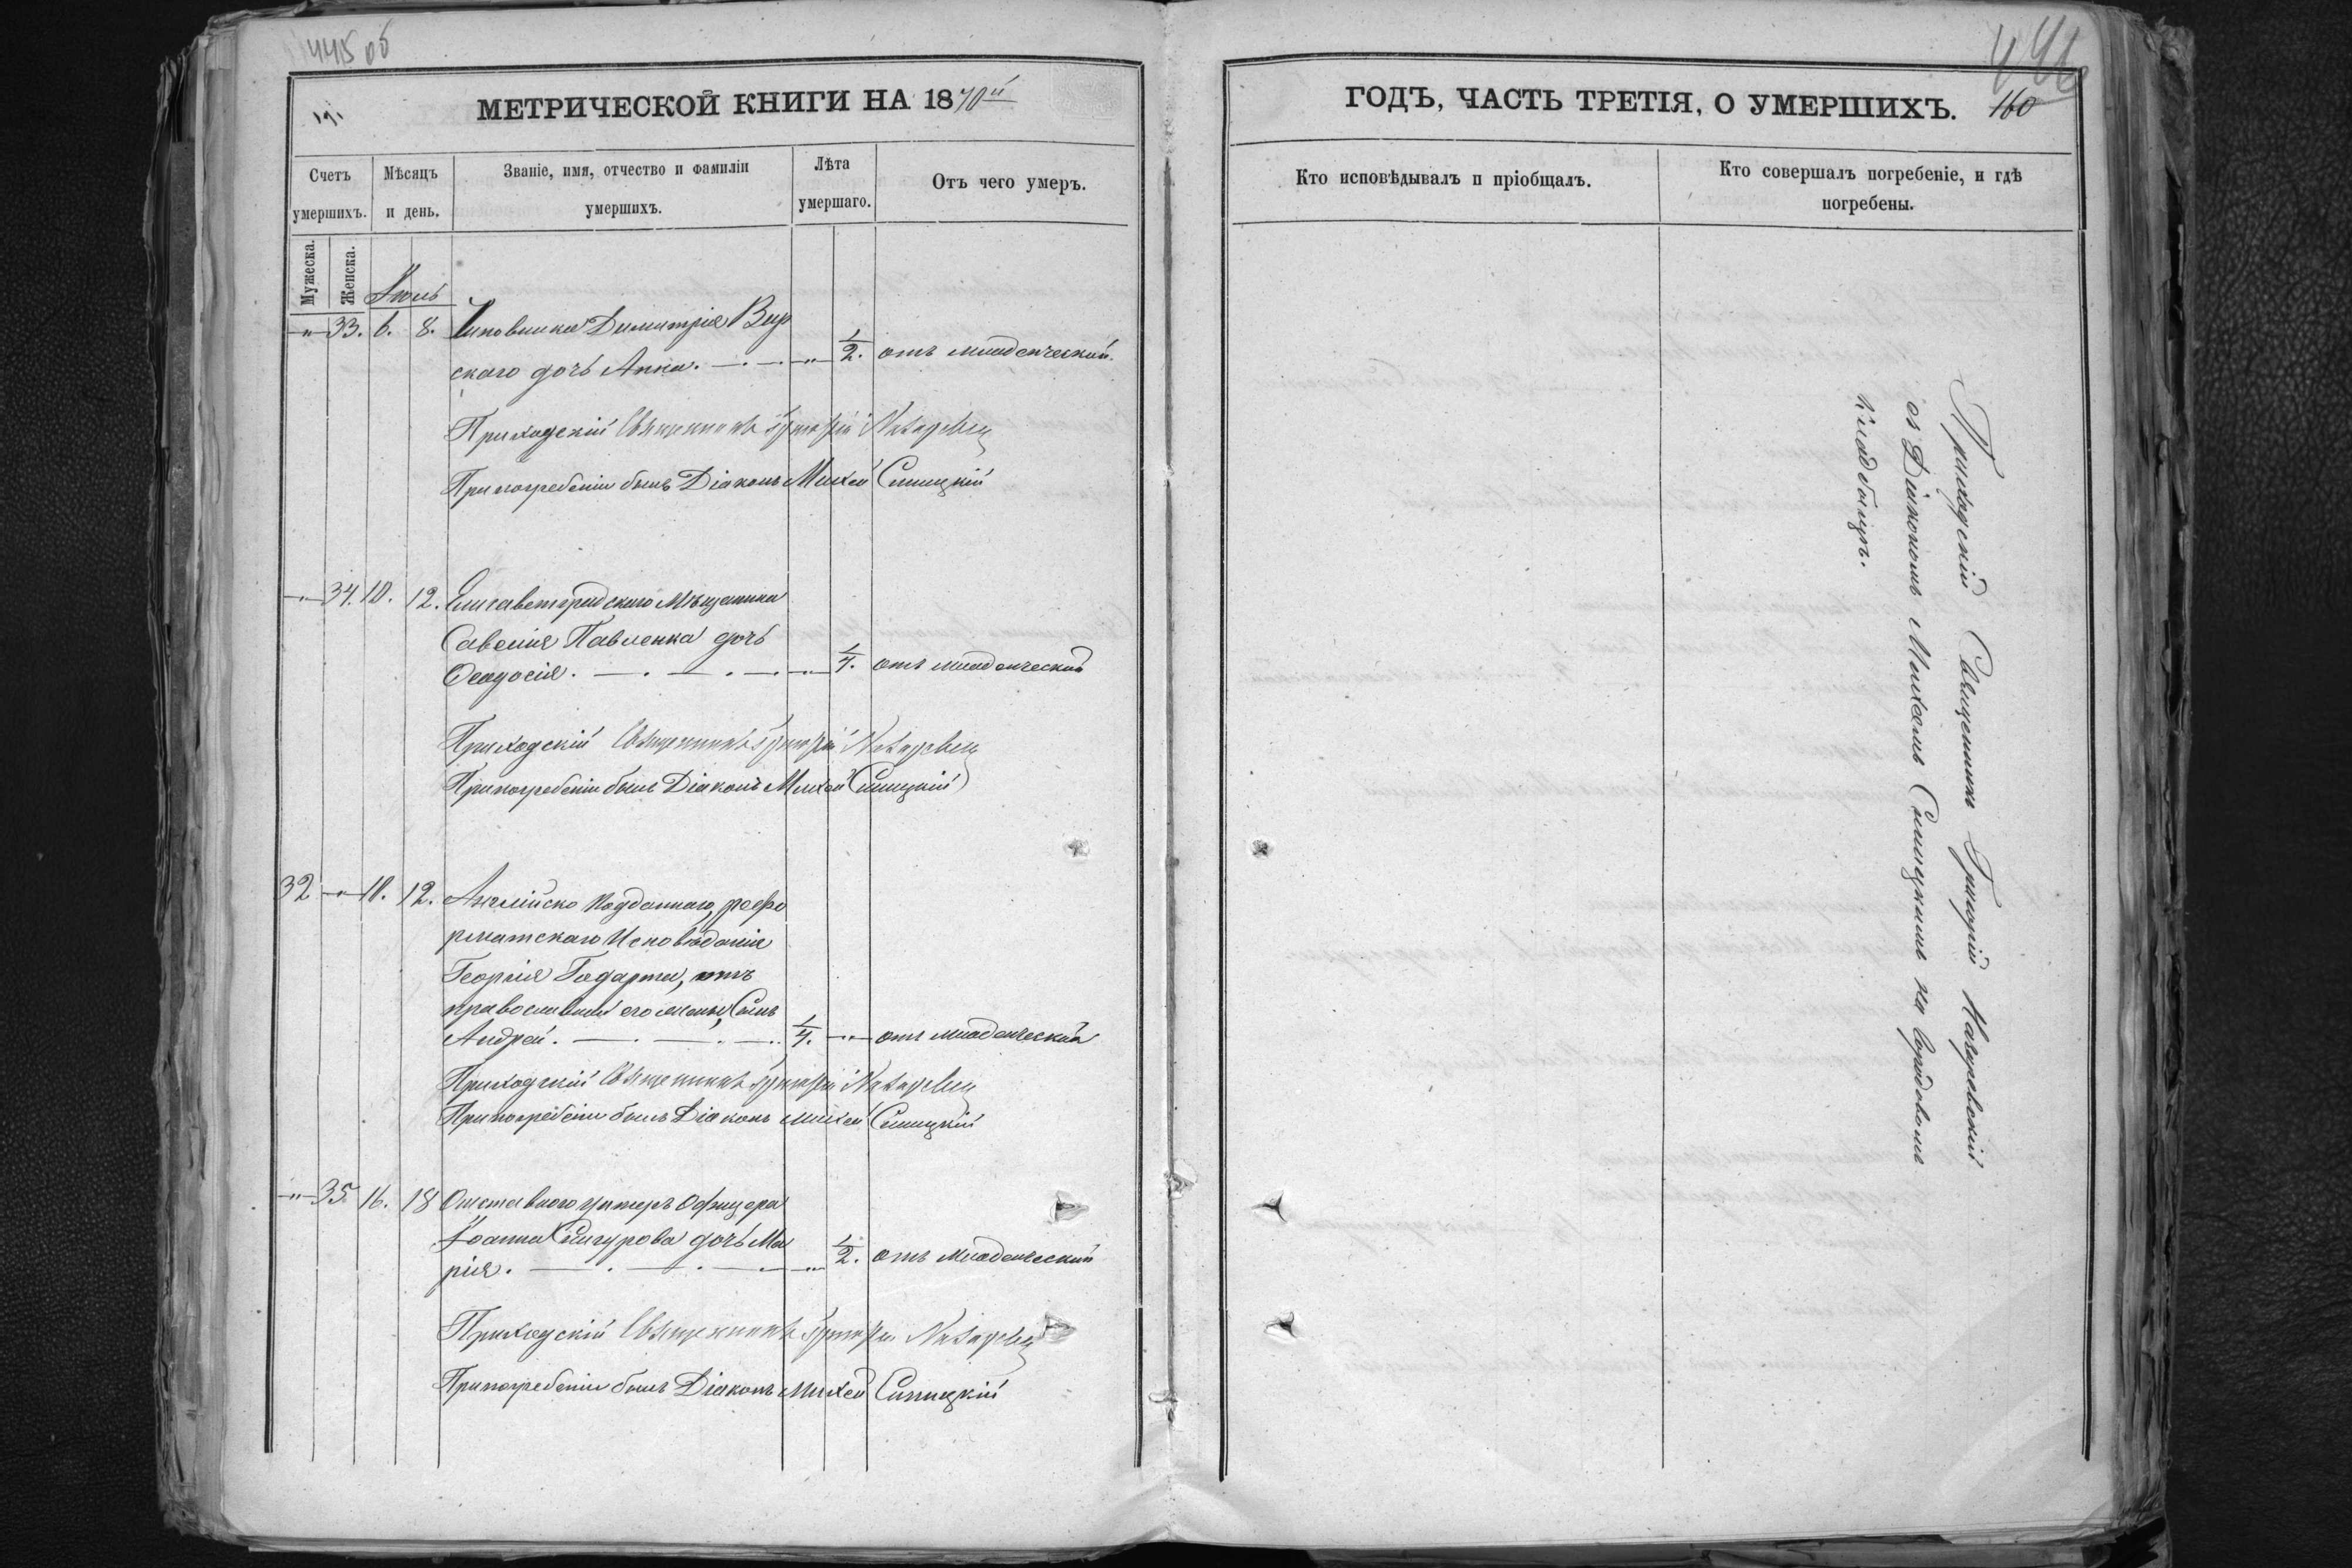 445 об
МЕТРИЧЕСКОЙ КНИГИ НА 1870й
Счетъ умершихъ.
Мѣсяцъ и день.
Званіе, имя, отчество и фамиліи умершихъ.
Лѣта умершаго.
Отъ чего умеръ.
Мужеска.
Женска.
Іюль
„ 33. 6. 8. Чиновника Димитрія Вир
скаго дочь Анна. „ 1/2. отъ младенческой.
Приходскій Священникъ Григорій
При погребеніи былъ Діаконъ Михей Синицкій
„ 34. 10. 12. Елисаветградскаго Мѣщанина
Савелія Павленка дочь
Ѳеодосія. „ 1/4. отъ младенческой
Приходскій Священникъ Григорій
При погребеніи былъ Діаконъ Михей Синицкій
32 „ 10. 12. Англійско подданнаго, рефо
рматскаго Исповѣданія
Георгія Годарта, отъ
православной его жены, Сынъ
Андрей. 1/4. „ отъ младенческой
Приходскій Священникъ Григорій
При погребеніи былъ Діаконъ Михей Синицкій
„ 35. 16. 18 Отставного унтеръ Офицера
Іоанна дочь Ма
рія. „ 1/2. отъ младенческой
Приходскій Священникъ Григорій
При погребеніи былъ Діаконъ Михей Синицкій
446
ГОДЪ, ЧАСТЬ ТРЕТІЯ, О УМЕРШИХЪ. 160
Кто исповѣдывалъ и пріобщалъ.
Кто совершалъ погребеніе, и гдѣ погребены.
Приходскій Священникъ Григорій Назаревскій
съ Діакономъ Михеемъ Синицкимъ на городовомъ
кладбищѣ.